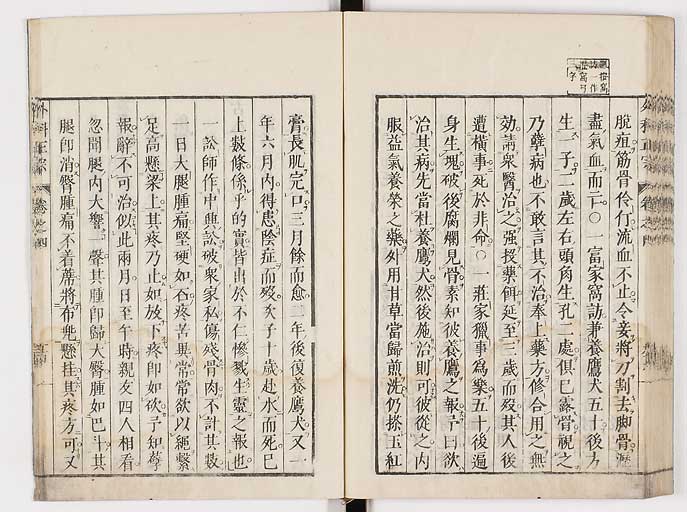 脫疽筋骨伶仃流血不止令妾將刀割去脚骨瀝
盡氣血而亡○一富家窩訪兼養鷹犬五十後方
生一子二歲左右頭角生孔二處俱已露骨視之
乃孽病也不敢言其不治奉上藥方修合用之無
効請衆醫治之強投藥餌延至三歲而歿其人後
遭橫事死於非命○一莊家獵事爲樂五十後遍
身生塊破後腐爛見骨素知彼養鷹之報予曰欲
治其病先當杜養鷹犬然後施治則可彼從之內
服益氣養榮之藥外用甘草當歸煎洗仍搽玉紅
膏長肌完口三月餘而愈二年後復養鷹犬又一
年六月內得患陰症而歿亥子十歲赴水而死已
上數條係乎的實皆出於不仁慘戮生靈之報也
一訟師作中興訟破衆家私傷殘骨肉不計其數
一日大腿腫痛堅硬如石疼苦異常常欲以繩繫
足高懸梁上其疼乃止如放下疼即如砍予知孽
報辭不可治似此兩月日至午時親友四人相看
忽聞腿內大響一聲其腫即歸大臀腫如巴斗其
腿即消臀腫痛不着蓆將布兠懸挂其疼方可又
外科正宗 卷之四